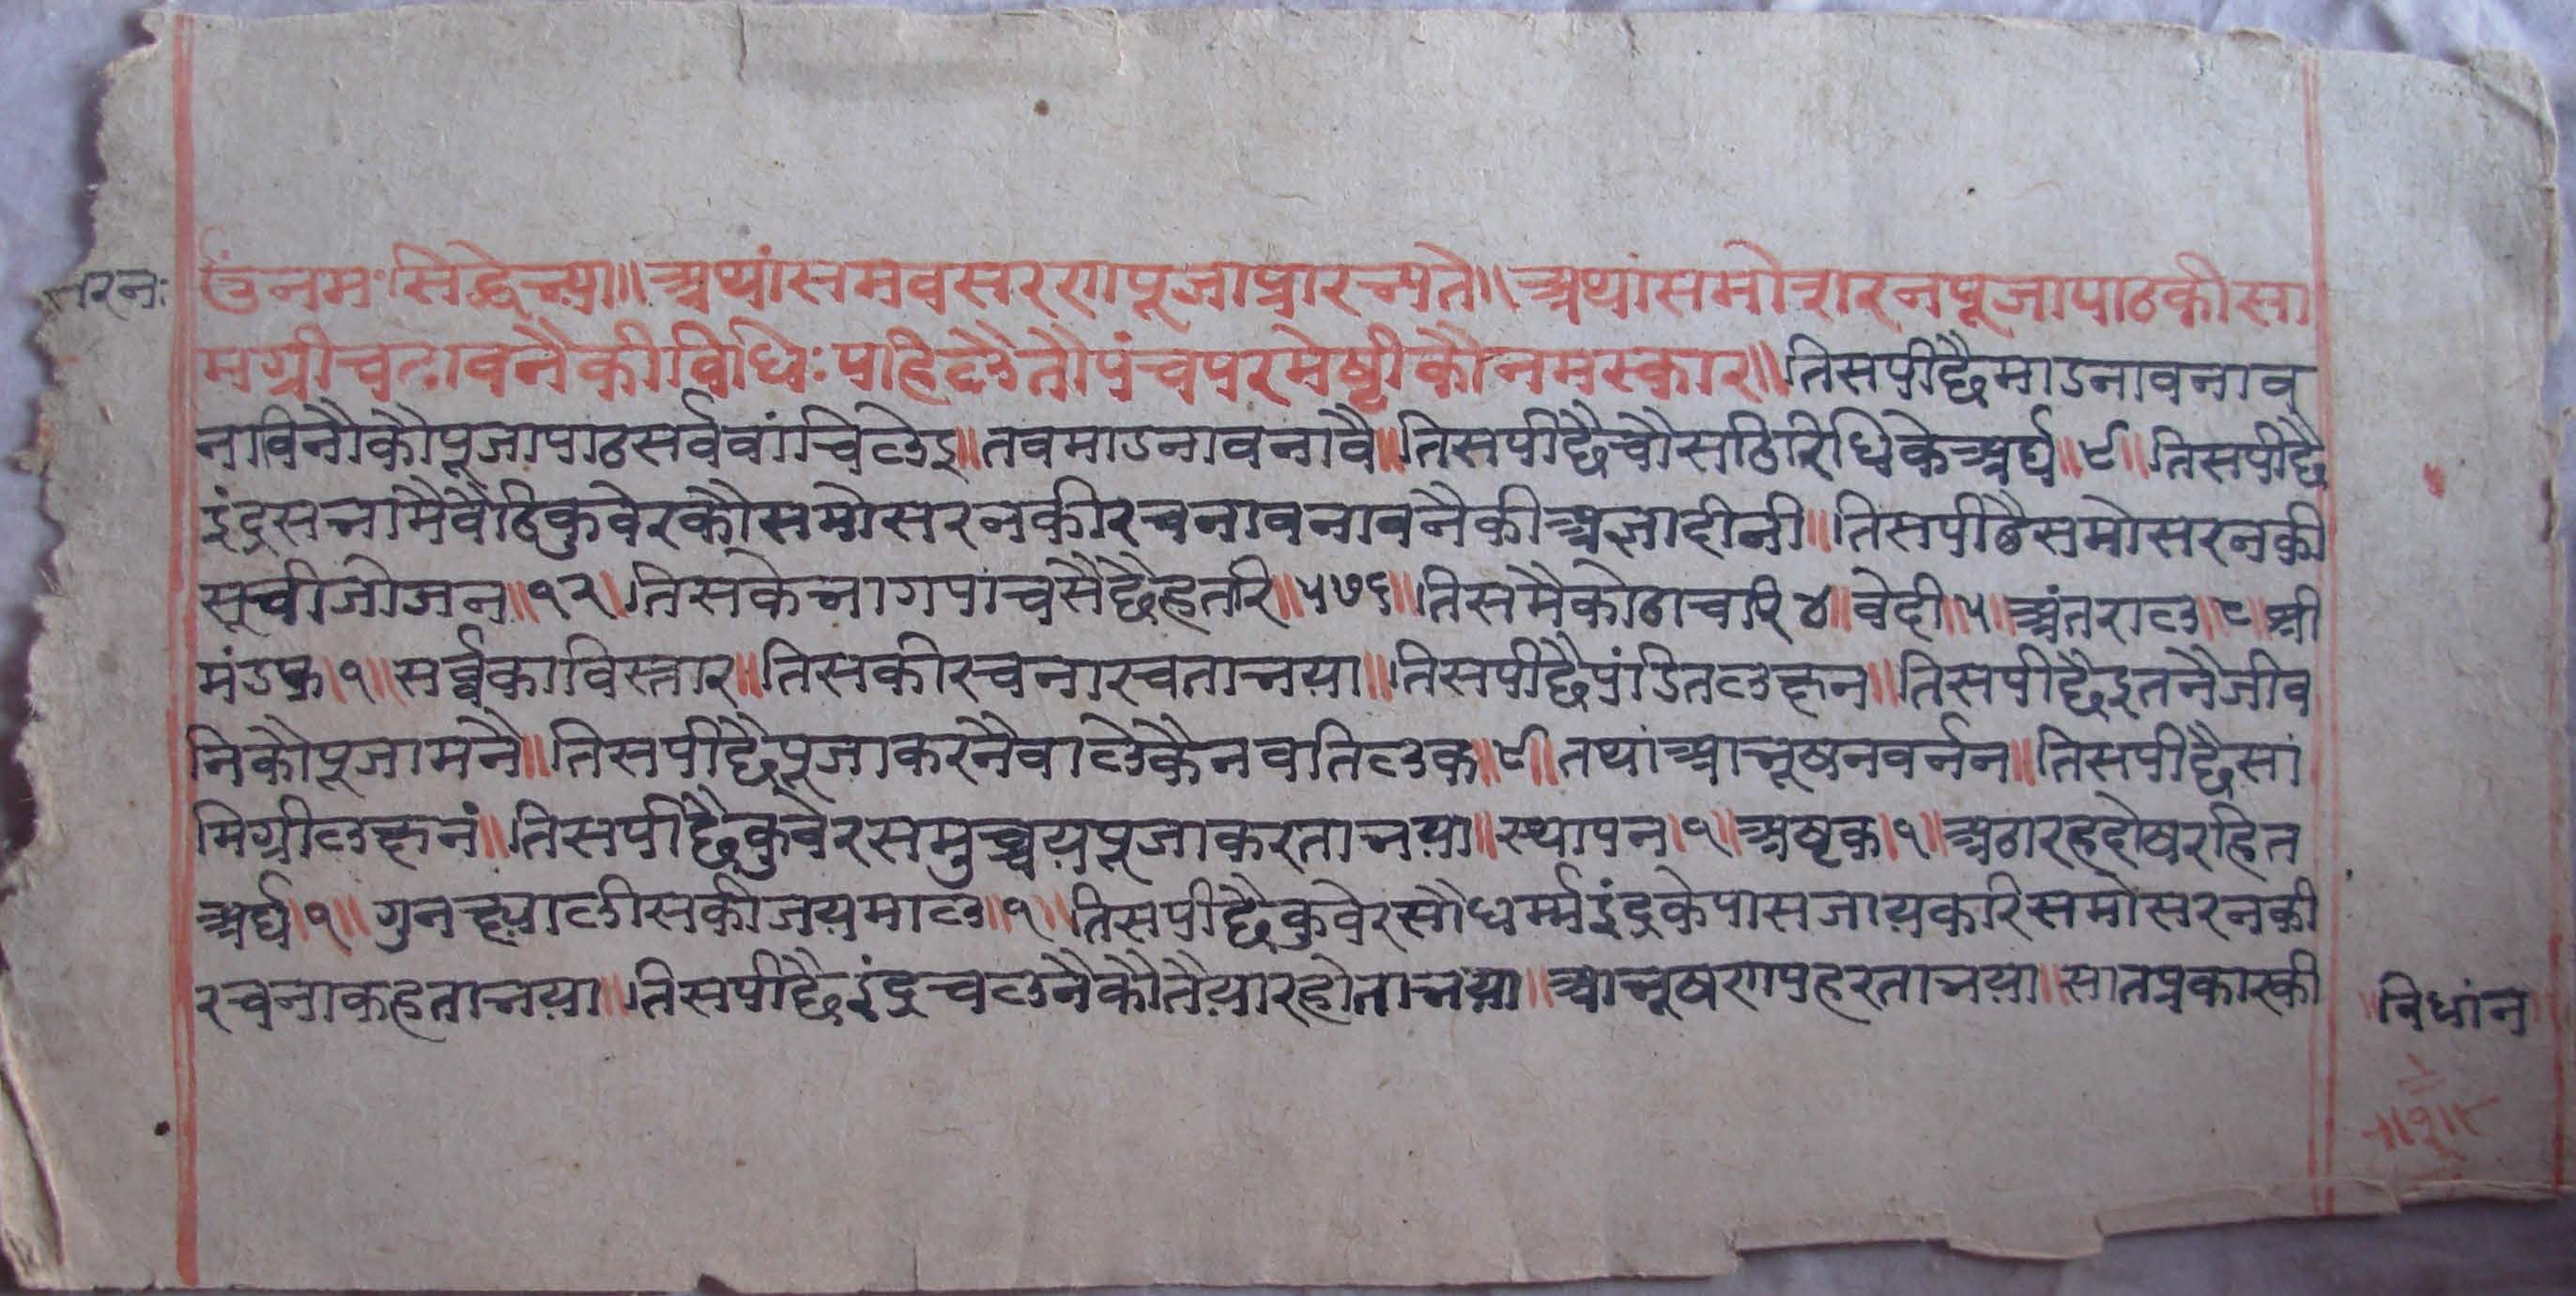 ॐनमःसिद्धेभ्या॥अथांसमवसरणपूजाप्रारभ्यते॥अथांसमोशरनपूजापाठकीसा
मग्रीचढावनैकीविधिः पहिलैतौपंचपरमेष्ठीकौनमस्कार॥तिसपीछैमाडनावनाव
नाविनौकौपूजापाठसर्ववांचिलेइ॥तवमाडनावनावै॥तिसपीछैचौसठिरिधिकेअर्घ॥९॥तिसपीछै
इंद्रसभामैवैठिकुवेरकौसमोसरनकीरचनावनावनैकीअज्ञादीनी॥तिसपीछैसमोसरनकी
सूचीजोजन॥१२॥तिसकेभागपांचसैछैहतरि॥५७६॥तिसमैकोठाचारि४॥वेदी॥५॥अंतराल॥८॥श्री
मंडफ॥१॥सर्वकाविस्तार॥तिसकीरचनारचताभया॥तिसपीछैपंडितलछन॥तिसपीछैइतनैजीव
निकौपूजामनै॥तिसपीछैपूजाकरनैवालेकैनवतिलक॥९॥तथांआभूषनवर्नन॥तिसपीछैसां
मिग्रीलछनं॥तिसपीछैकुवेरसमुच्चयपूजाकरताभया॥स्थापन॥१॥अष्टक॥१॥अठारहदोषरहित
अर्घ॥१॥गुनछ्यालीसकीजयमाल॥१॥तिसपीछैकुवेरसौधर्म्मइंद्रकेपासजायकरिसमोसरनकी
रचनाकहताभया॥तिसपीछैइंद्रचलनैकौतैयारहोताभया॥आभूषणपहरताभया॥सातप्रकारकी
रनः
विधांन
॥१॥